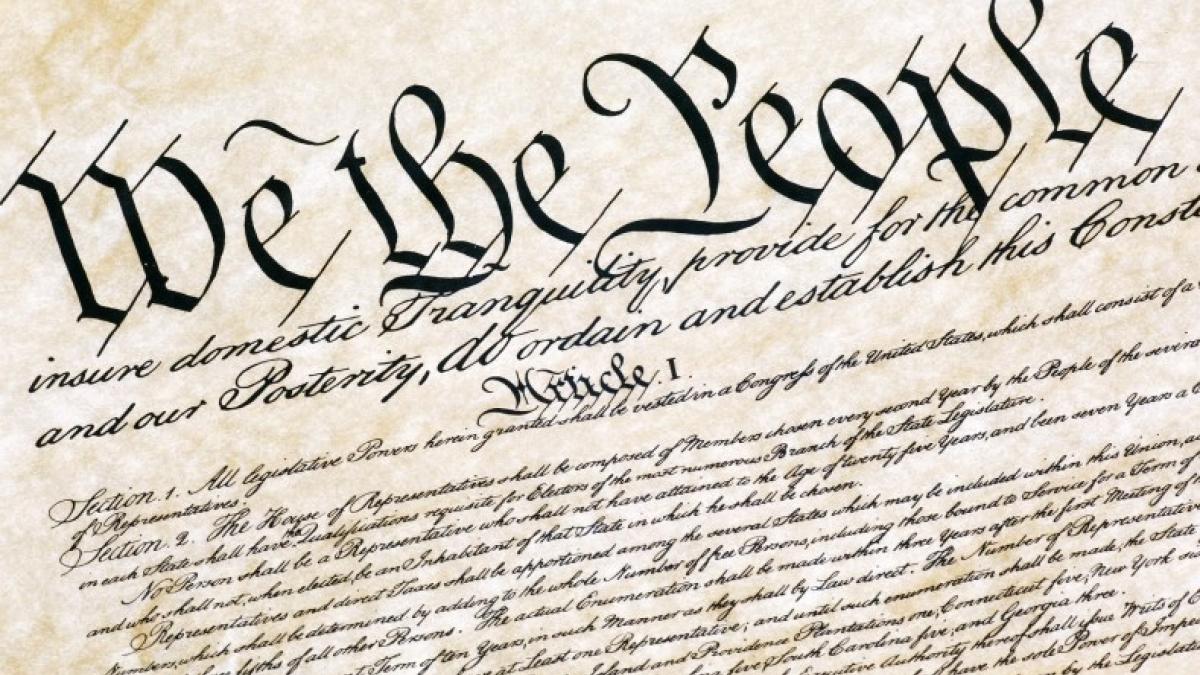 We the People
insure domestic Tranquility, provide for the common
and our Posterity, do ordain and establish this Const
Article. I.
Section. 1. All legislative Powers herein granted shall be vested in a Congress of the United States, which shall consist of a
of Representatives.
Section. 2. The House of Representatives shall be composed of Members chosen every second Year by the People of the several
in each State shall have the Qualifications requisite for Electors of the most numerous Branch of the State Legislature.
No Person shall be a Representative who shall not have attained to the Age of twenty five Years, and been seven Years a
and who shall not, when elected, be an Inhabitant of that State in which he shall be chosen.
Representatives and direct Taxes shall be apportioned among the several States which may be included within this Union,
Numbers, which shall be determined by adding to the whole Number of free Persons, including those bound to Service for a Term of
fifths of all other Persons. The actual Enumeration shall be made within three Years after the first Meeting of
Term of ten Years, in such Manner as they shall by Law direct. The Number of Representatives
at Least one Representative; and until such enumeration shall be made, the State
Island and Providence Plantations one, Connecticut five, New York
five, South Carolina five, and Georgia three.
Executive Authority thereof shall issue Writs of
have the sole Power of
by the Legislature